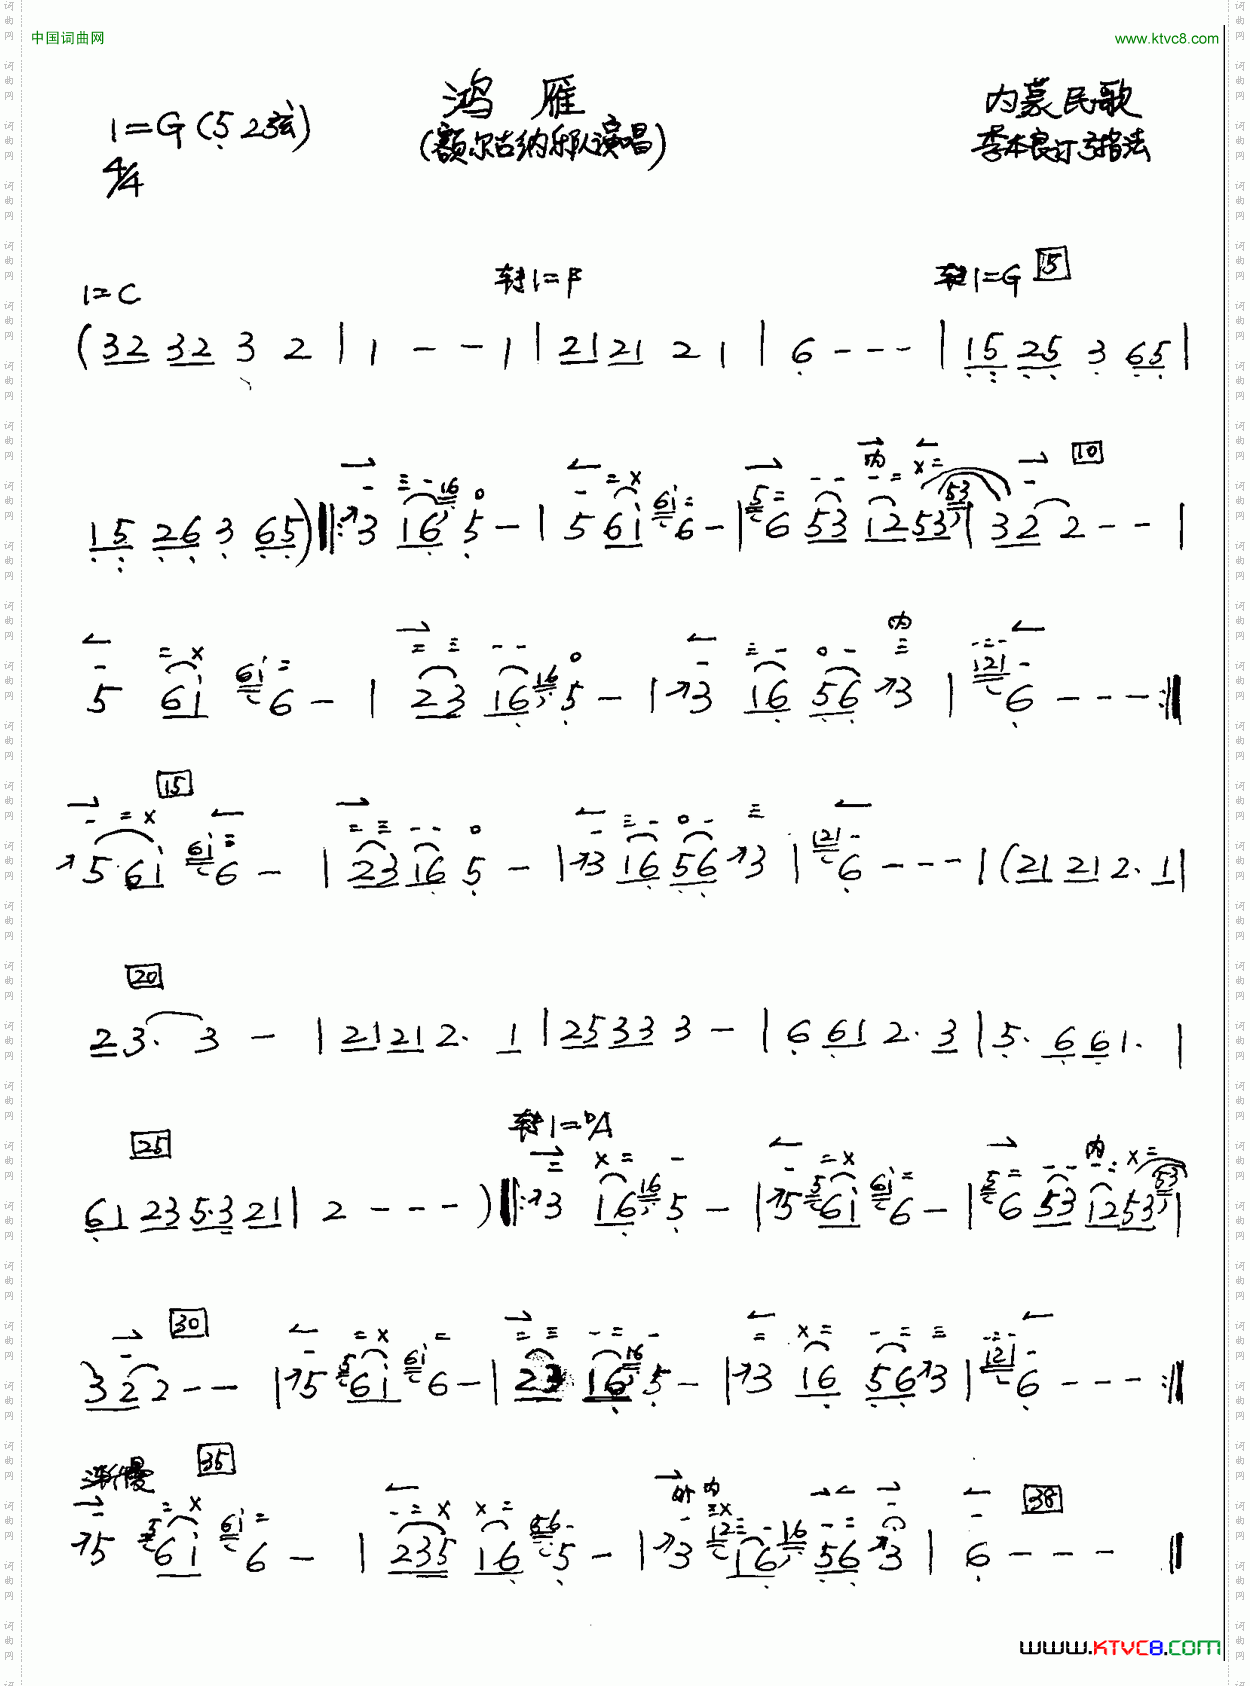 中国词曲网 www.ktvc8.com
鸿雁 内蒙民歌
1=G (5 2弦) (额尔古纳乐队演唱) 李本良订弓指法
4/4
1=C 转1=F 转1=G 5
(32 32 3 2 | 1 - - 1 | 21 21 2 1 | 6 - - - | 15 25 3 65 |
内 10
15 26 3 65) ‖: 3 16 16 5 - | 5 61 61 6 - | 5 6 53 1253 53 | 32 2 - - |
内
5 61 61 6 - | 23 16 16 5 - | 3 16 56 3 | 121 6 - - - :‖
15
5· 61 61 6 - | 23 16 5 - | 3 16 56 3 | 121 6 - - - | (21 21 2· 1 |
20
23· 3 - | 21 21 2· 1 | 25 33 3 - | 6 61 2· 3 | 5· 6 61· |
25 转1=bA 内
61 23 5·3 21 | 2 - - - ) ‖: 3 16 16 5 - | 5 5 61 61 6 - | 5 6 53 1253 53 |
30
32 2 - - | 5 5 61 61 6 - | 23 16 16 5 - | 3 16 56 3 | 121 6 - - - :‖
渐慢 35 外 内 38
5 5 61 61 6 - | 235 16 56 5 - | 3 12 16 16 56 3 | 6 - - - ‖
www.KTVC8.COM